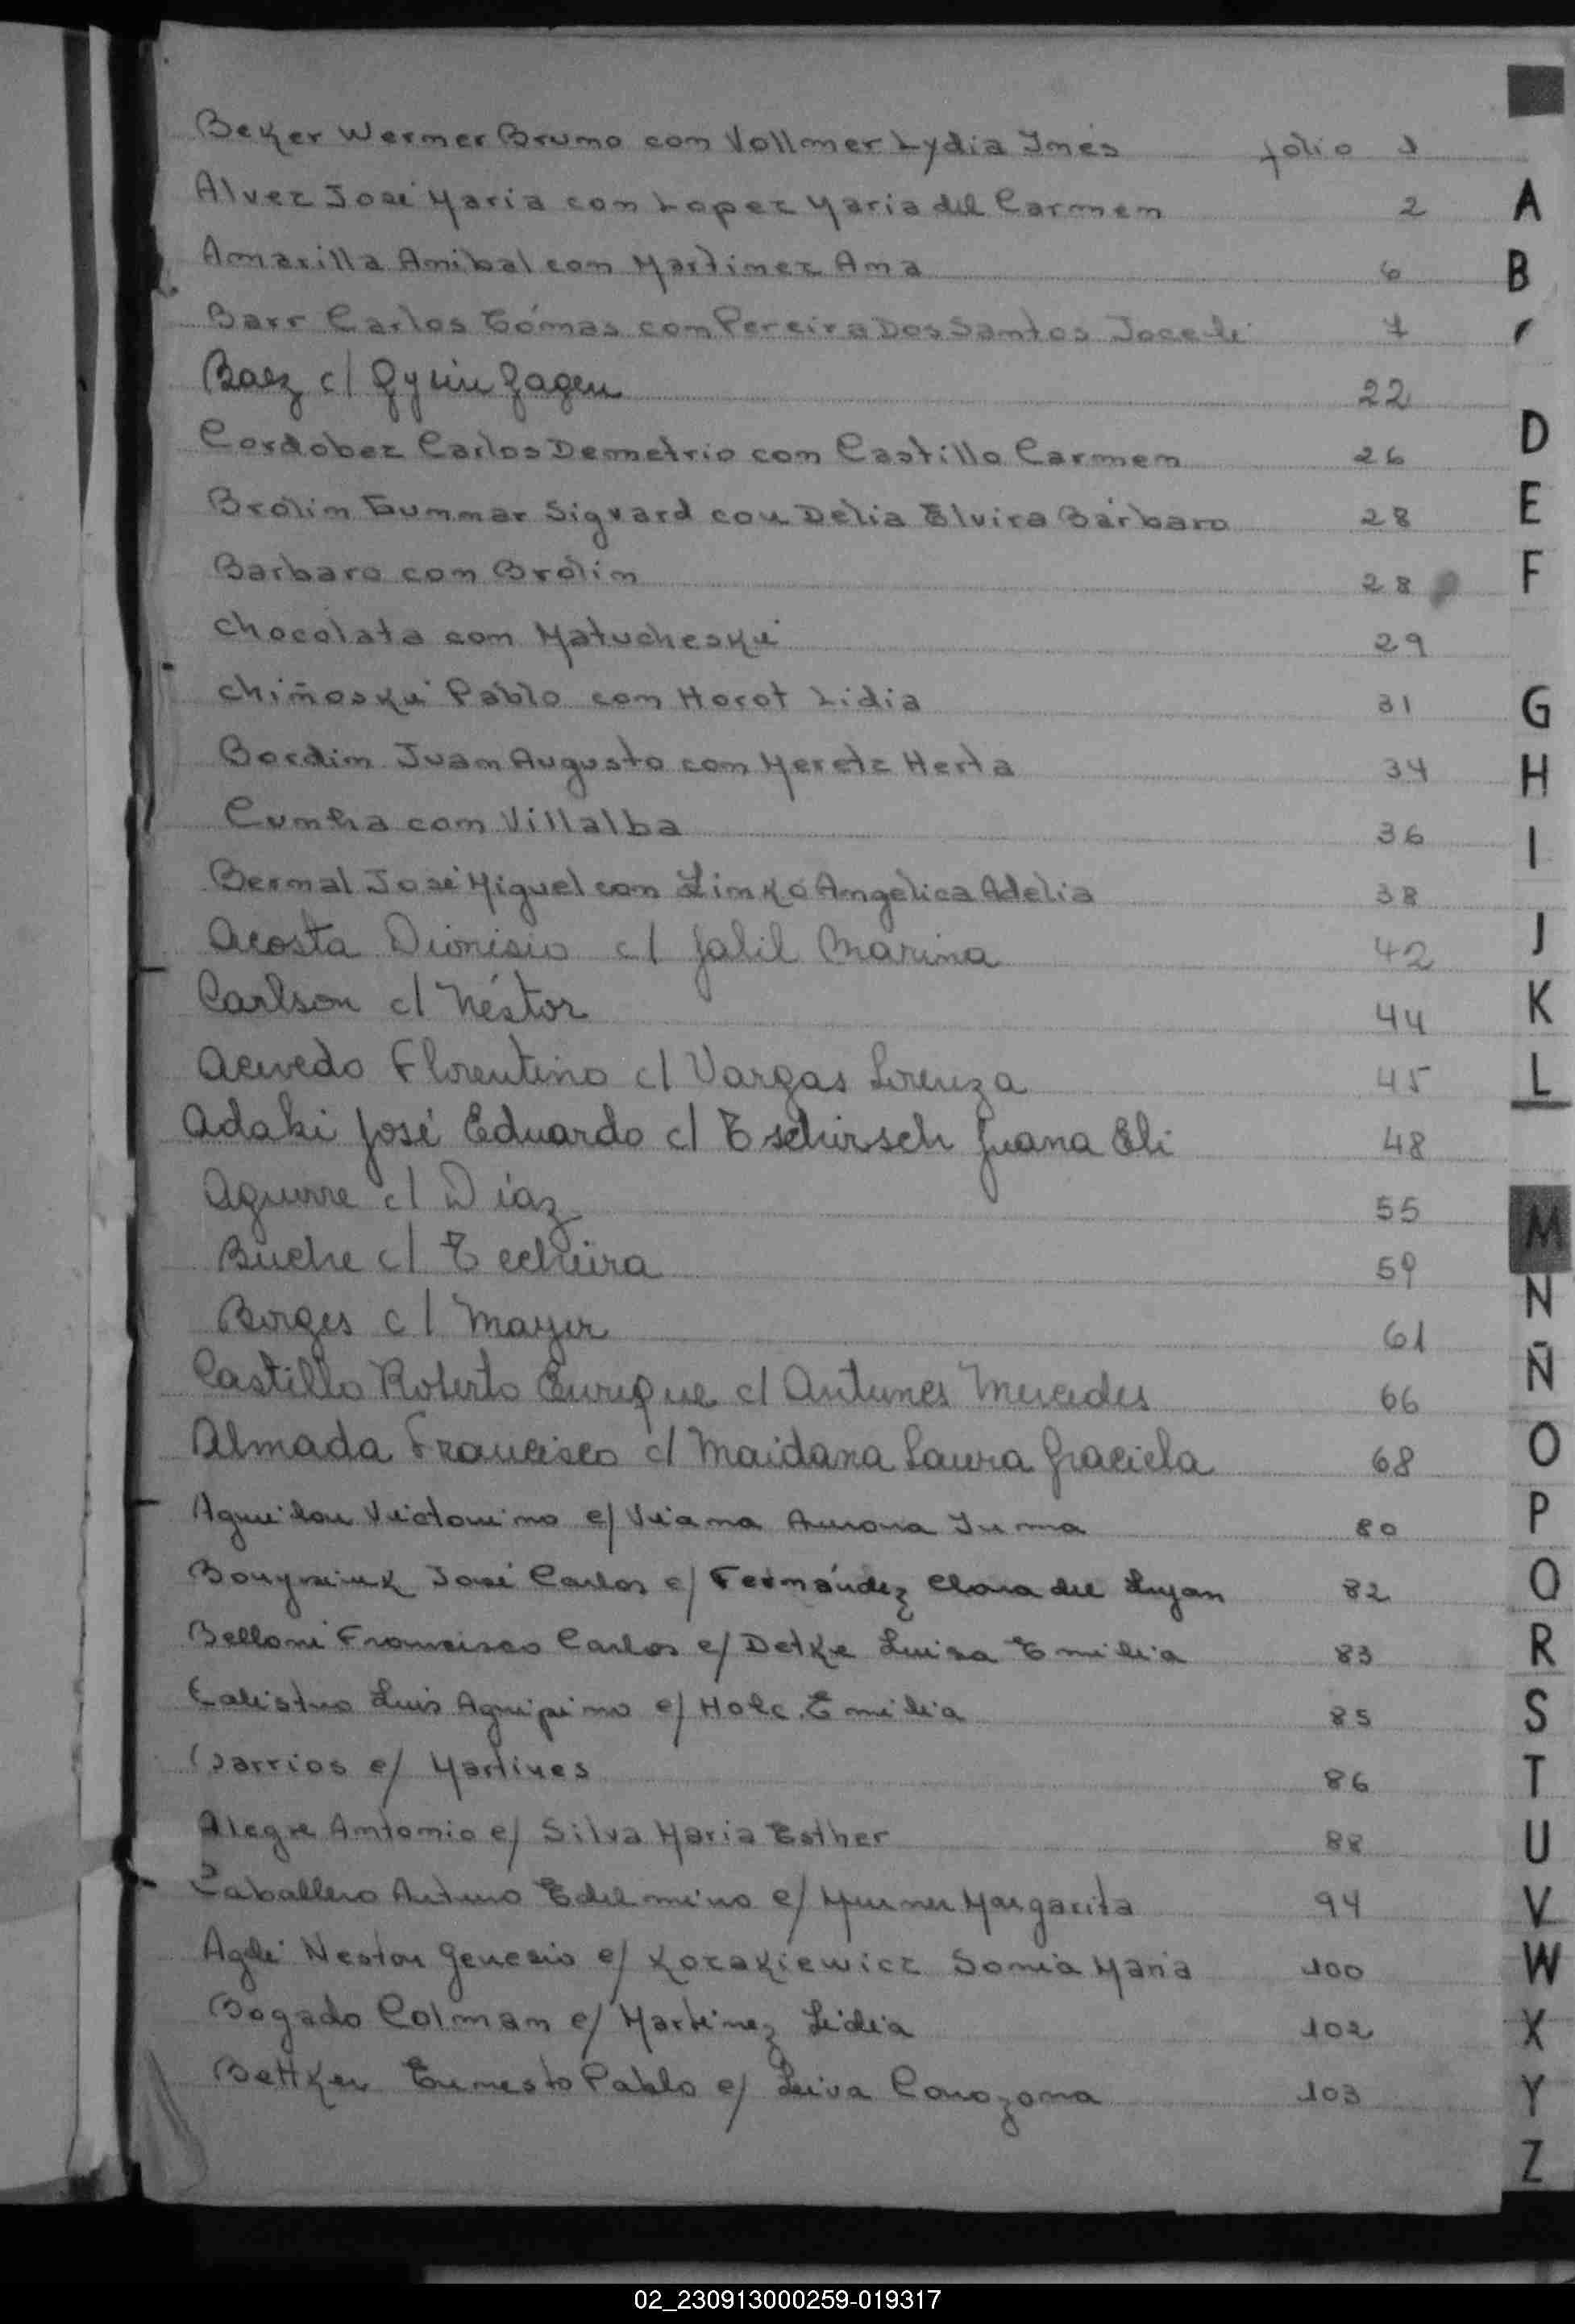 Beker Werner Bruno con Vollmer Lydia Inés folio 1
Alvez José Maria con Lopez Maria del Carmen 2
Amarilla Anibal con Martinez Ana 6
Barr Carlos Tómas con Pereira Dos Santos Joceli 7
Baez c/ 22
Cordobez Carlos Demetrio con Castillo Carmen 26
Brolin Gunnar Sigvard con Delia Elvira Bárbaro 28
Barbaro con Brolin 28
Chocolata con Matucheski 29
Chiñoski Pablo con Horot Lidia 31
Bordin Juan Augusto con Meretz Herta 34
Cunha con Villalba 36
Bernal José Miguel con Linko Angelica Adelia 38
Acosta Dionisio c/ Jalil Marina 42
Carlson c/ Néstor 44
Acevedo Florentino c/ Vargas Lorenza 45
Adaki José Eduardo c/ Tschirsch Juana Eli 48
Aguirre c/ Díaz 55
Buche c/ Techeira 59
Borges c/ Mayer 61
Castillo Roberto Enrique c/ Antunes Mercedes 66
Almada Francisco c/ Maidana Laura Graciela 68
Aguilar Victorino c/ Viana Aurora Irma 80
José Carlos c/ Fernández Clara del Lujan 82
Belloni Francisco Carlos c/ Detke Luisa Emilia 83
Calistro Luis Agripino c/ Holc Emilia 85
Barrios c/ Martines 86
Alegre Antonio c/ Silva Maria Esther 88
Caballero Arturo Edelmiro c/ Margarita 94
Nestor Genesio c/ Kozakiewicz Sonia Maria 100
Bogado Colman c/ Martinez Lidia 102
Bettker Ernesto Pablo c/ Leiva 103
A
B
D
E
F
G
H
I
J
K
L
M
N
Ñ
O
P
Q
R
S
T
U
V
W
X
Y
Z
02_230913000259-019317